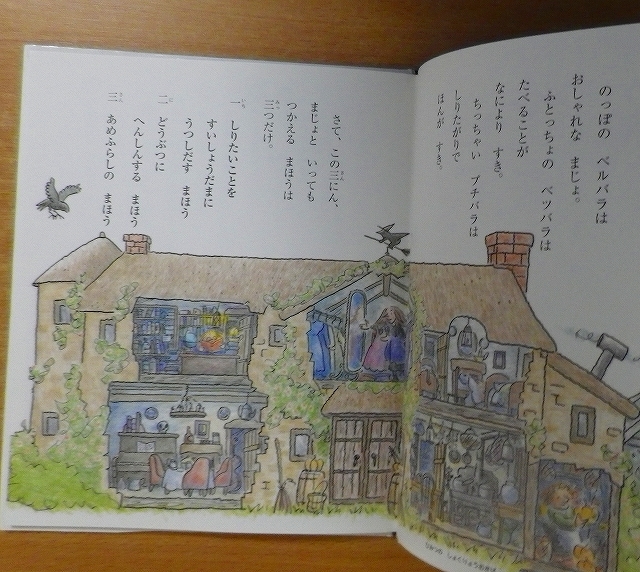 のっぽの ベルバラは
おしゃれな まじょ。
ふとっちょの ベツバラは
たべることが
なにより すき。
ちっちゃい プチバラは
しりたがりで
ほんが すき。
さて、この三にん、
まじょと いっても
つかえる まほうは
三つだけ。
一 しりたいことを
すいしょうだまに
うつしだす まほう
二 どうぶつに
へんしんする まほう
三 あめふらしの まほう